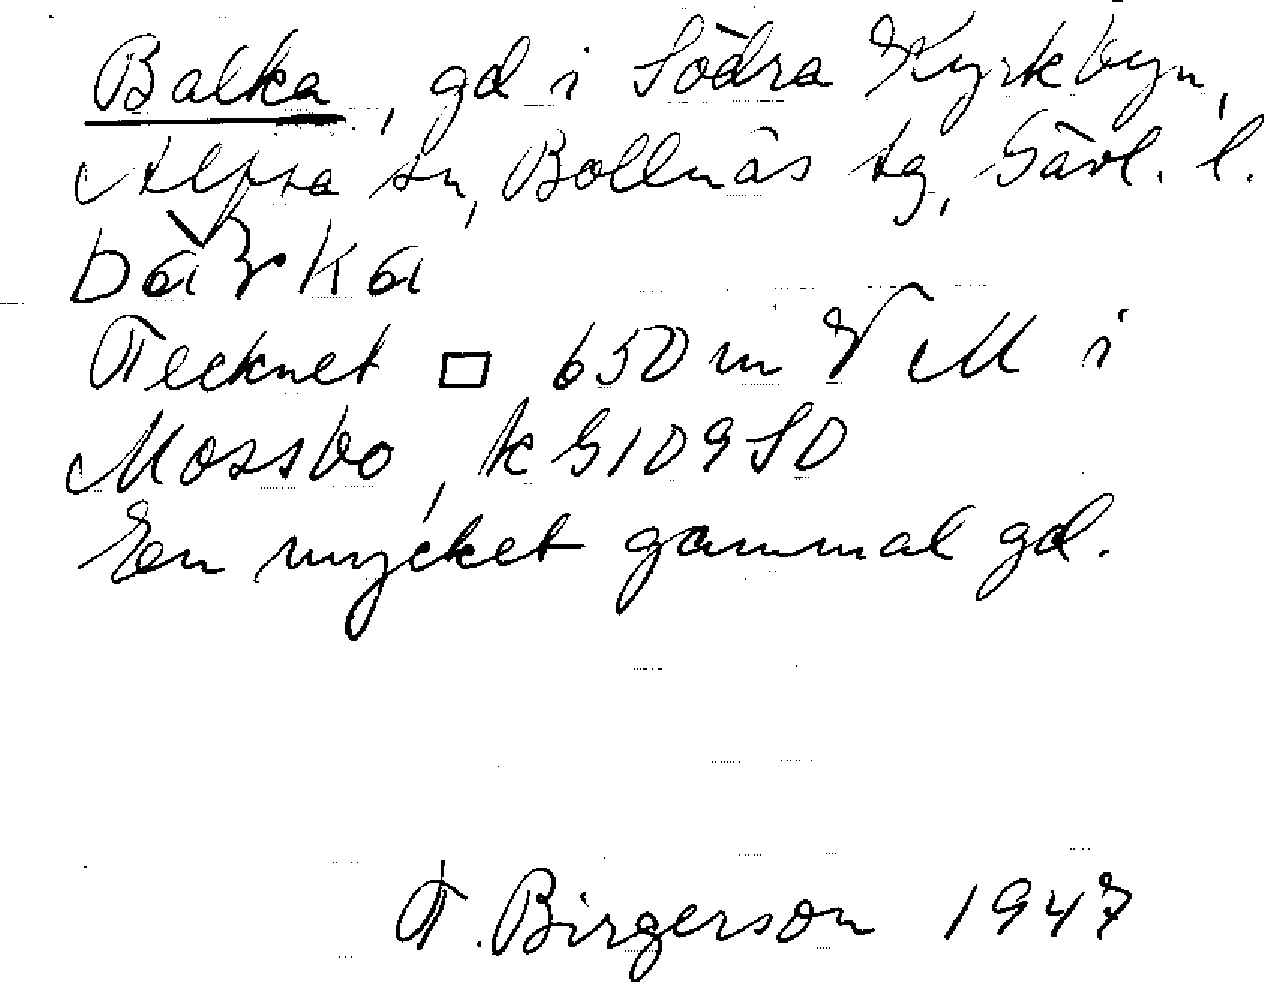 Balka, gd i Södra Kyrkbyn,
Alfta sn, Bollnäs tg, Gävl. l.
Tecknet □ 650 m V M i
Mossbo, k G109SO
En mycket gammal gd.
T. Birgerson 1947